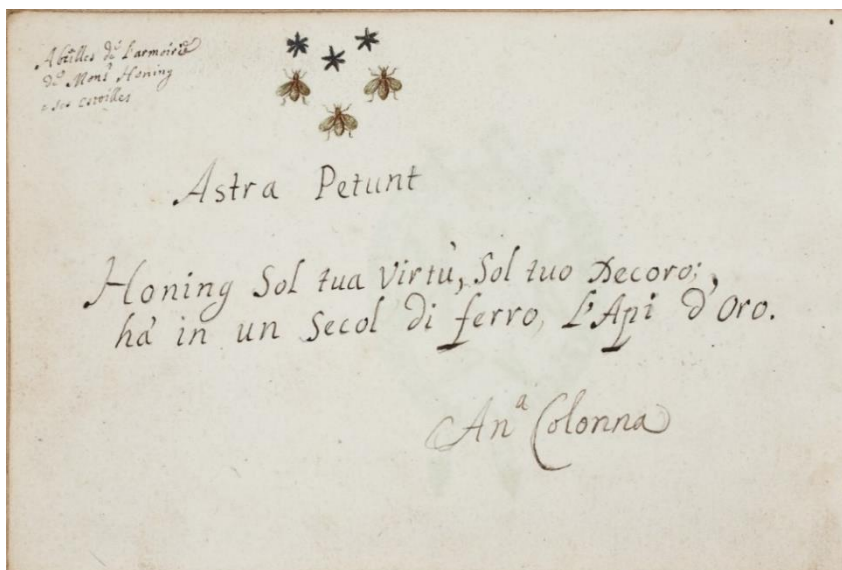 Abeilles de l'armoirie
de Mons.r Honing
e ses estoilles
Astra Petunt
Honing Sol tua Virtù, Sol tuo Decoro;
ha' in un Secol di ferro, L'Api d'Oro.
An.a Colonna